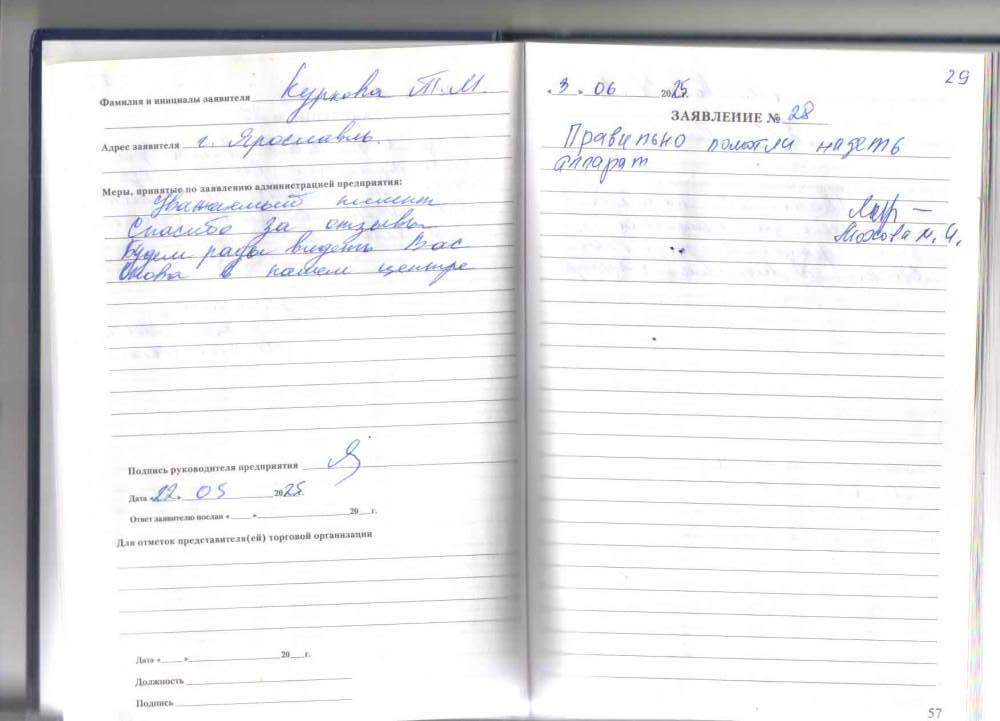 Фамилия и инициалы заявителя Куркова Т.М.
Адрес заявителя г. Ярославль.
Меры, принятые по заявлению администрацией предприятия:
Уважаемый клиент
Спасибо за отзывы
Будем рады видеть Вас
Снова в нашем центре
Подпись руководителя предприятия
Дата «22» 05 2025г.
Ответ заявителю послан «___» ___ 20__г.
Для отметок представителя(ей) торговой организации
Дата «___» ___ 20__г.
Должность
Подпись
29
«3» 06 2025г.
ЗАЯВЛЕНИЕ № 28
Правильно помогли надеть
аппарат
М. И.
57